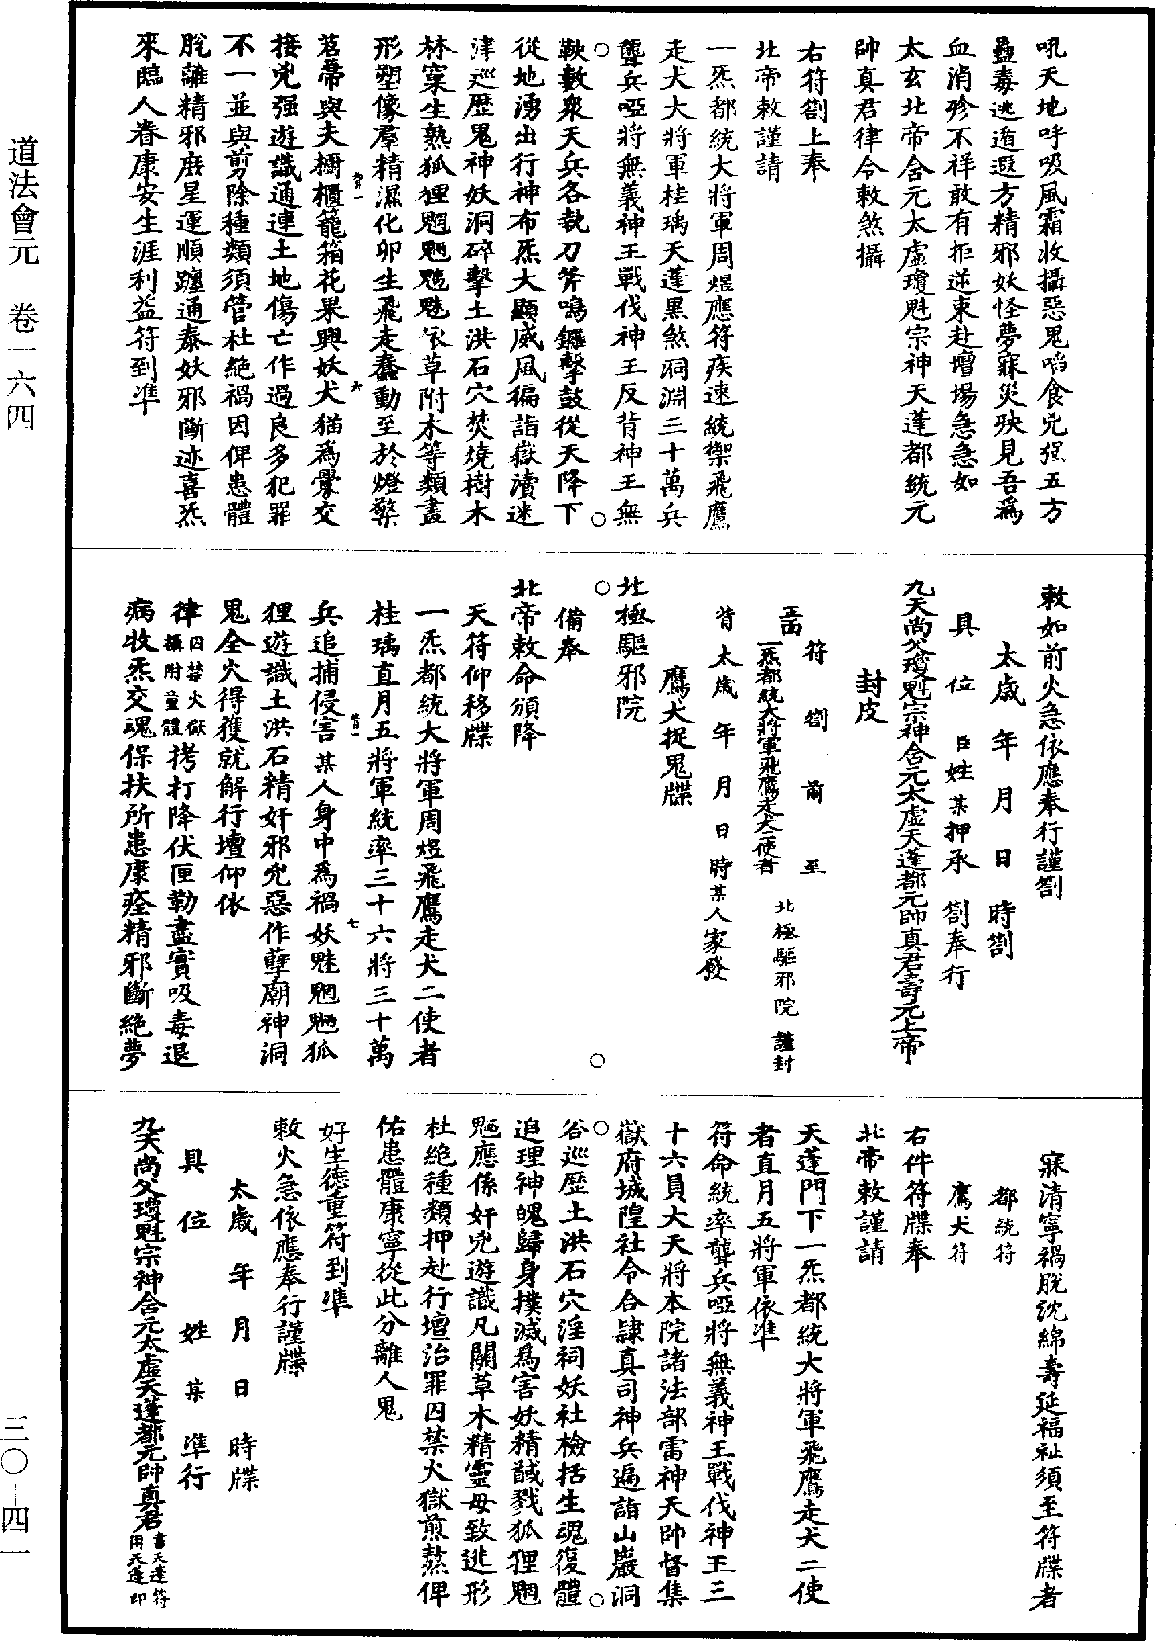 道法會元　卷一六四
三〇－四一
吼天地呼吸風霜收攝惡鬼啗食兇強五方
蠱毒逃遁遐方精邪妖怪夢寐災殃見吾爲
血消殄不祥敢有拒逆束赴壇場急急如
太玄北帝含元太虛瓊魁宗神天蓬都統元
帥真君律令敕煞攝
右符劄上奉
北帝敕謹請
一炁都統大將軍周煜應符疾速統禦飛鷹
走犬大將軍桂瑀天蓬黑煞洞淵三十萬兵
聾兵啞將無義神王戰伐神王反背神王無
鞅數衆天兵各執刀斧鳴鑼擊鼓從天降下
從地湧出行神布炁大顯威風徧詣嶽瀆迷
津巡歷鬼神妖洞碎擊土洪石穴焚燒樹木
林窠生熟狐狸魍魎魑魅依草附木等類畫
形塑像羣精濕化卵生飛走蠢動至於燈檠
苕箒與夫櫥櫃籠箱花果興妖犬猫爲釁交
接兇强遊識通連土地傷亡作過良多犯罪
不一並與剪除種類須管杜絕禍因俾患體
脫離精邪辰星運順躔通泰妖邪斷迹喜炁
來臨人眷康安生涯利益符到準
敕如前火急依應奉行謹劄
太歲　年　月　日　時劄
具　位　臣姓某押承　劄奉行
九天尚父瓊魁宗神含元太虛天蓬都元帥真君壽元上帝
封皮
符　劄　前　至
正面　一炁都統大將軍飛鷹走犬二使者　北極驅邪院　謹封
背　太歲　年　月　日　時某人家發
鷹犬捉鬼牒
北極驅邪院
備奉
北帝敕命頒降
天符仰移牒
一炁都統大將軍周煜飛鷹走犬二使者
桂瑀直月五將軍統率三十六將三十萬
兵追捕侵害某人身中爲禍妖魅魍魎狐
狸遊識土洪石精奸邪兇惡作孽廟神洞
鬼全火得獲就解行壇仰依
律囚禁火獄攝附童體拷打降伏匣勒盡實吸毒退
病收炁交魂保扶所患康痊精邪斷絕夢
寐清寧禍脫沈綿壽延福祉須至符牒者
都統符
鷹犬符
右件符牒奉
北帝敕謹請
天蓬門下一炁都統大將軍飛鷹走犬二使
者直月五將軍依準
符命統率聾兵啞將無義神王戰伐神王三
十六員大天將本院諸法部雷神天帥督集
嶽府城隍社令合隸真司神兵遍詣山巖洞
谷巡歷土洪石穴淫祠妖社檢括生魂復體
追理神魄歸身撲滅爲害妖精馘戮狐狸魍
魎應係奸兇遊識凡關草木精靈毋致逃形
杜絕種類押赴行壇治罪囚禁火獄煎熬俾
佑患體康寧從此分離人鬼
好生德重符到準
敕火急依應奉行謹牒
太歲　年　月　日　時牒
具　位　姓　某　準行
九天尚父瓊魁宗神含元太虛天蓬都元帥真君書天蓬符用天蓬印